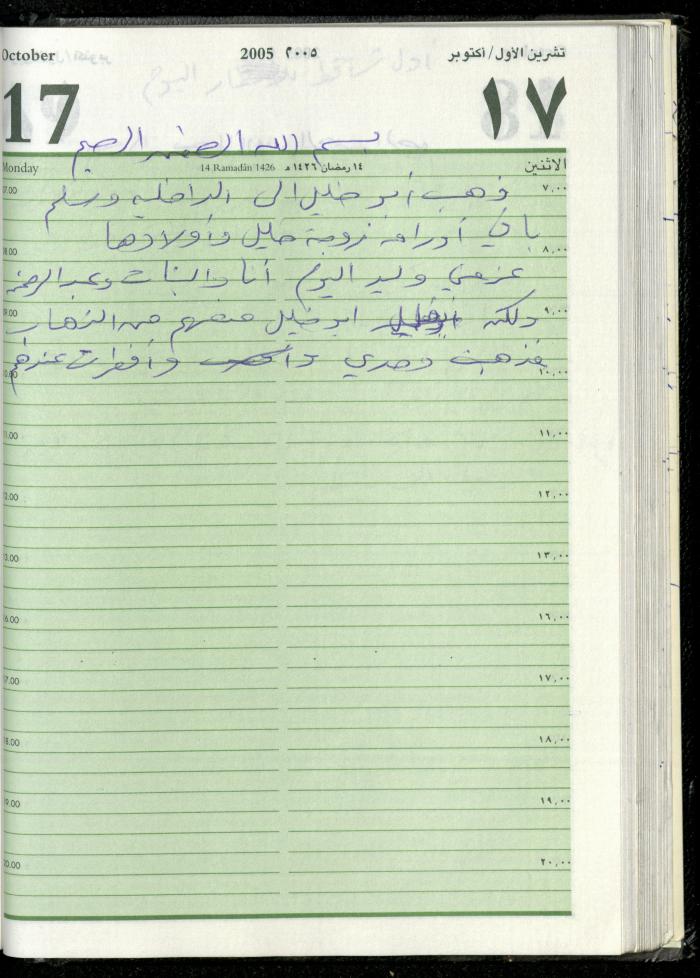 October 2005 ٢٠٠٥ تشرين الأول/أكتوبر
17 ١٧
بسم الله الرحمن الرحيم
Monday 14 Ramadân 1426 ١٤ رمضان ١٤٢٦ هـ الاثنين
07.00 ٧,٠٠
ذهب أبو خليل الى الداخليه وسلم
باقي أوراق زوجة خليل وأولادها
08.00 ٨,٠٠
عزمني وليد اليوم أنا والبنات وعبد الرحمن
09.00 ٩,٠٠
ولكن ابو خليل منعهم من الذهاب
فذهبت وحدي وأفطرت عندهم
10.00 ١٠,٠٠
11.00 ١١,٠٠
12.00 ١٢,٠٠
13.00 ١٣,٠٠
16.00 ١٦,٠٠
17.00 ١٧,٠٠
18.00 ١٨,٠٠
19.00 ١٩,٠٠
20.00 ٢٠,٠٠